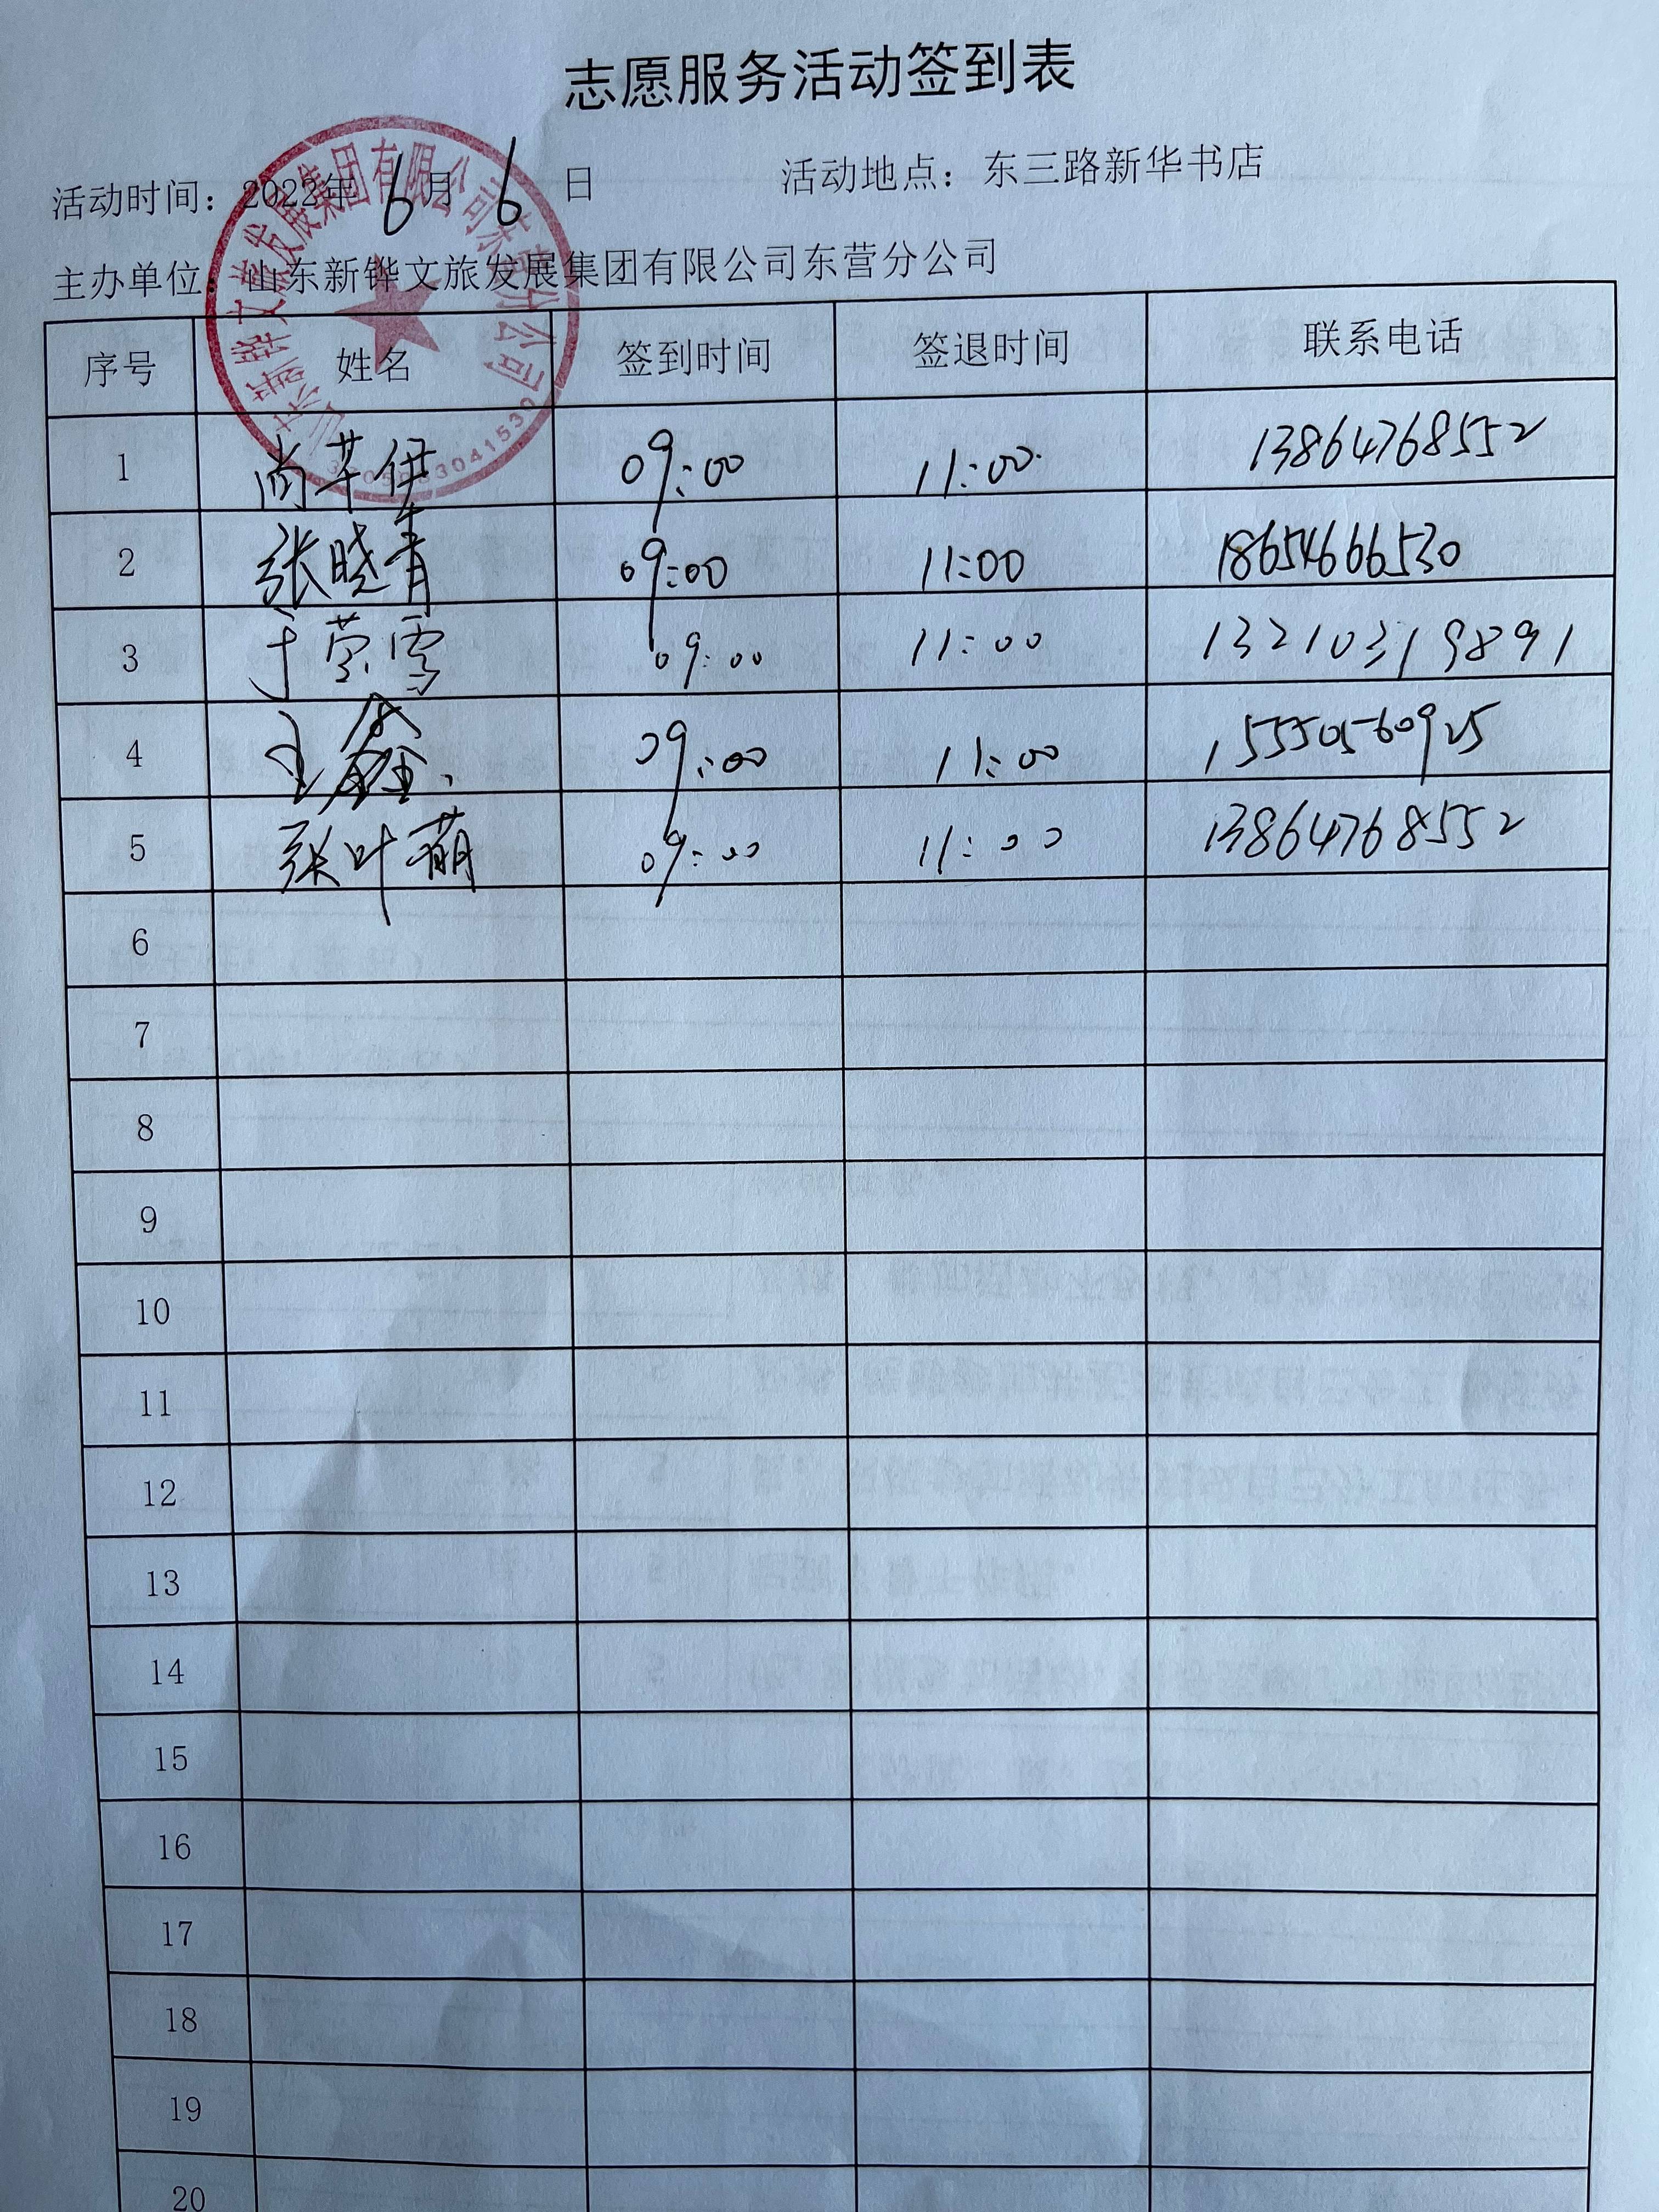 志愿服务活动签到表
活动时间：2022年 6月 6 日 活动地点：东三路新华书店
主办单位：山东新铧文旅发展集团有限公司东营分公司
山东新铧文旅发展集团有限公司东营分公司
序号 姓名 签到时间 签退时间 联系电话
1 尚苹伊 09:00 11:00 13864768552
2 张晓青 09:00 11:00 18654666530
3 于莹雪 09:00 11:00 13210319891
4 王鑫 09:00 11:00 15550560925
5 张叶萌 09:00 11:00 13864768552
6
7
8
9
10
11
12
13
14
15
16
17
18
19
20